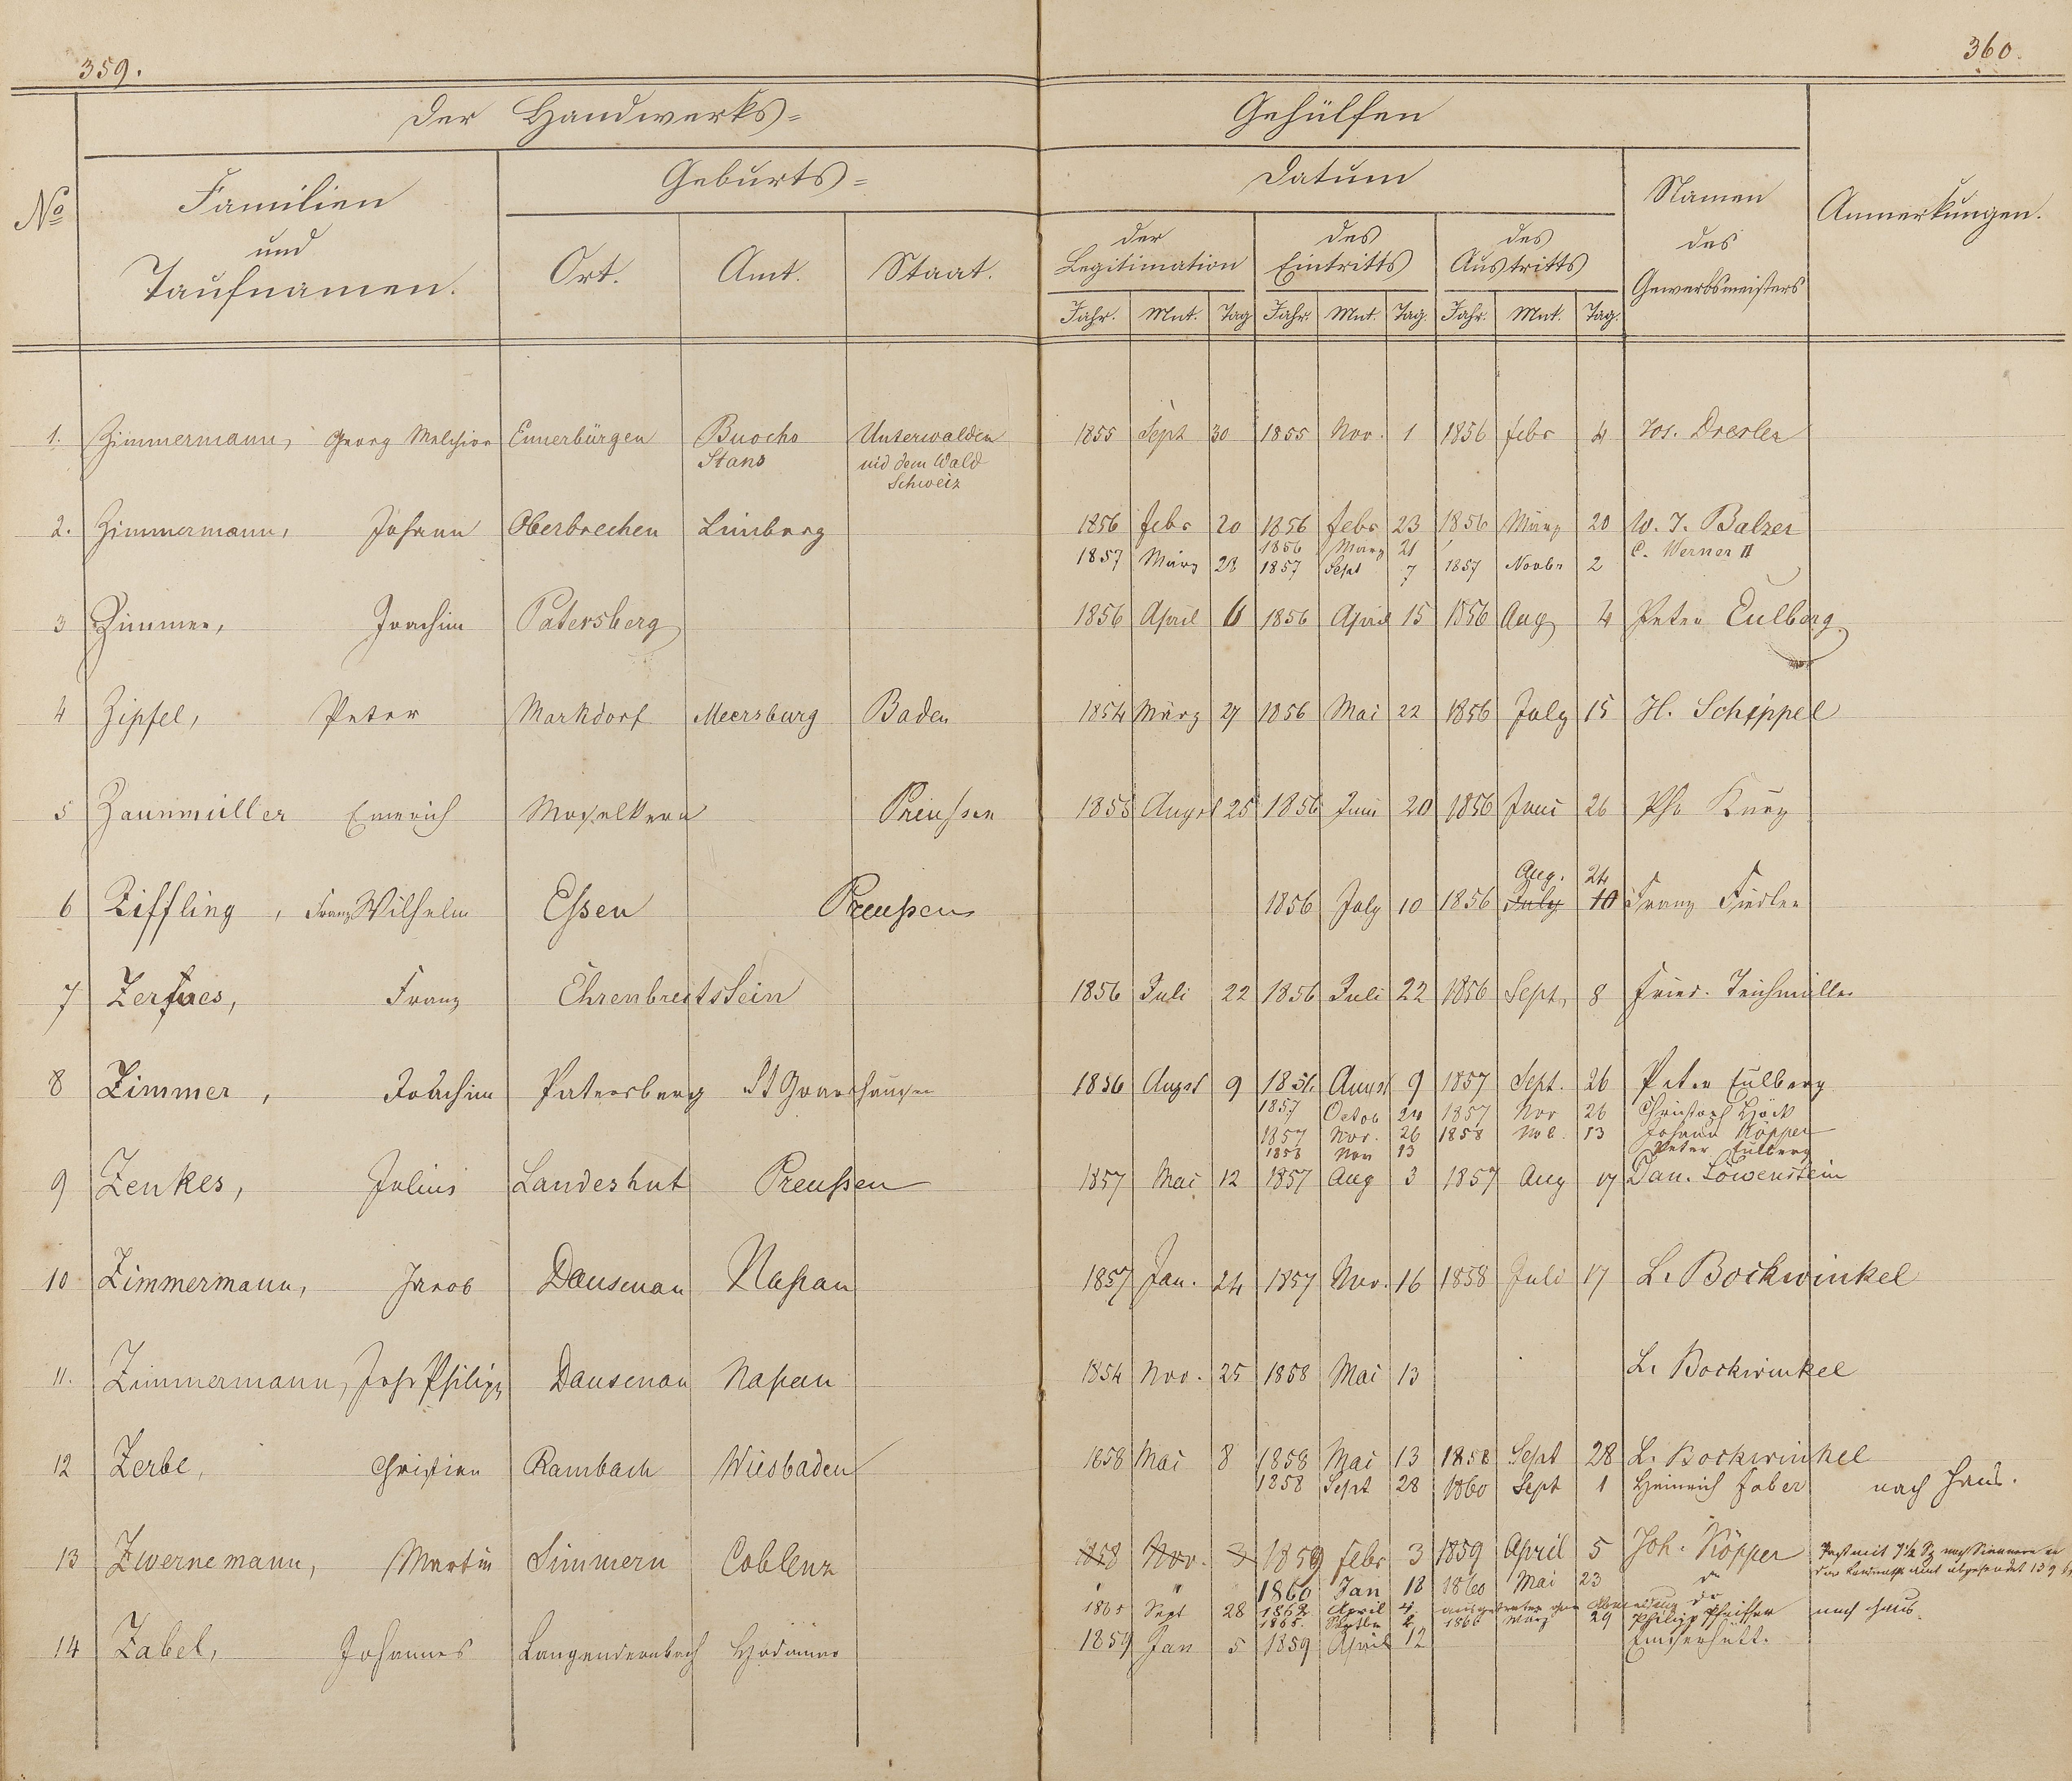 359.
360.
Der Handwerks=
Gehülfen
No
Familien
und
Taufnamen.
Geburts=
Ort. Amt. Staat.
Datum
der Legitimation
des Eintritts
des Austritts
Jahr. Mnt. Tag Jahr. Mnt. Tag. Jahr. Mnt. Tag.
Namen
des
Gewerbsmeisters
Anmerkungen.
1. Zimmermann, Georg Melchior Ennerbürgen Buochs Unterwalden 1855 Sept 30 1855 Nov. 1 1856 febr 4 Jos. Dresler
Stans nid dem Wald
Schweiz
2. Zimmermann, Johann Oberbrechen Limburg 1856 febr 20 1856 febr 23 1856 März 20 W. J. Balzer
1856 März 21 C. Werner II
1857 März 28 1857 Sept 7 1857 Novbr 2
3 Zimmer, Joachim Patersberg 1856 April 6 1856 April 15 1856 Aug 4 Peter Eulberg
4 Zipfel, Peter Markdorf Meersburg Baden 1854 März 27 1856 Mai 22 1856 July 15 H. Schippel
5 Zaunmüller Emerich Moselkern Preußen 1855 Augst 25 1856 Juni 20 1856 Juni 26 Phr Kurz
Aug. 24
6 Ziffling, Franz Wilhelm Eßen Preußen 1856 July 10 1856 July 10 Franz Fiedler
7 Zerfaes, Franz Ehrenbreitstein 1856 Juli 22 1856 Juli 22 1856 Sept, 8 Fried. Teichmüller
8 Zimmer, Joachim Patersberg St Goarshausen 1856 Augst 9 1856 Augst 9 1857 Sept. 26 Peter Eulberg
1857 Octob 24 1857 Nov 26 Christoph Höck
1857 Nov. 26 1858 Nov. 13 Johann Köpper
1858 Nov 13 Peter Eulberg
9 Zenkes, Julius Landeshut Preußen 1857 Mai 12 1857 Aug 3 1857 Aug 17 Dan. Löwenstein
10 Zimmermann, Jacob Dausenau Naßau 1857 Jan. 24 1857 Nov. 16 1858 Juli 17 L. Bockwinkel
11. Zimmermann, Joh Philipp Dausenau Naßau 1854 Nov. 25 1858 Mai 13 L. Bockwinkel
12 Zerbe, Christian Rambach Wiesbaden 1858 Mai 8 1858 Mai 13 1858 Sept 28 L. Bockwinkel
1858 Sept 28 1860 Sept 1 Heinrich Faber nach Haus.
13 Zwernemann, Martin Simmern Coblenz 1858 Nov. 3 1859 febr 3 1859 April 5 Joh. Köpper
1860 Jan 18 1860 Mai 23 do
1862 April 4. ausgetreten ohne Abmeldung do
1865 Sept 28 1865. Octbr 2 1866 März 29 Philipp Pfeiffer nach Haus.
14 Zabel, Johannes Langendernbach Hadamar 1859 Jan 5 1859 April 12 Emserhütt.